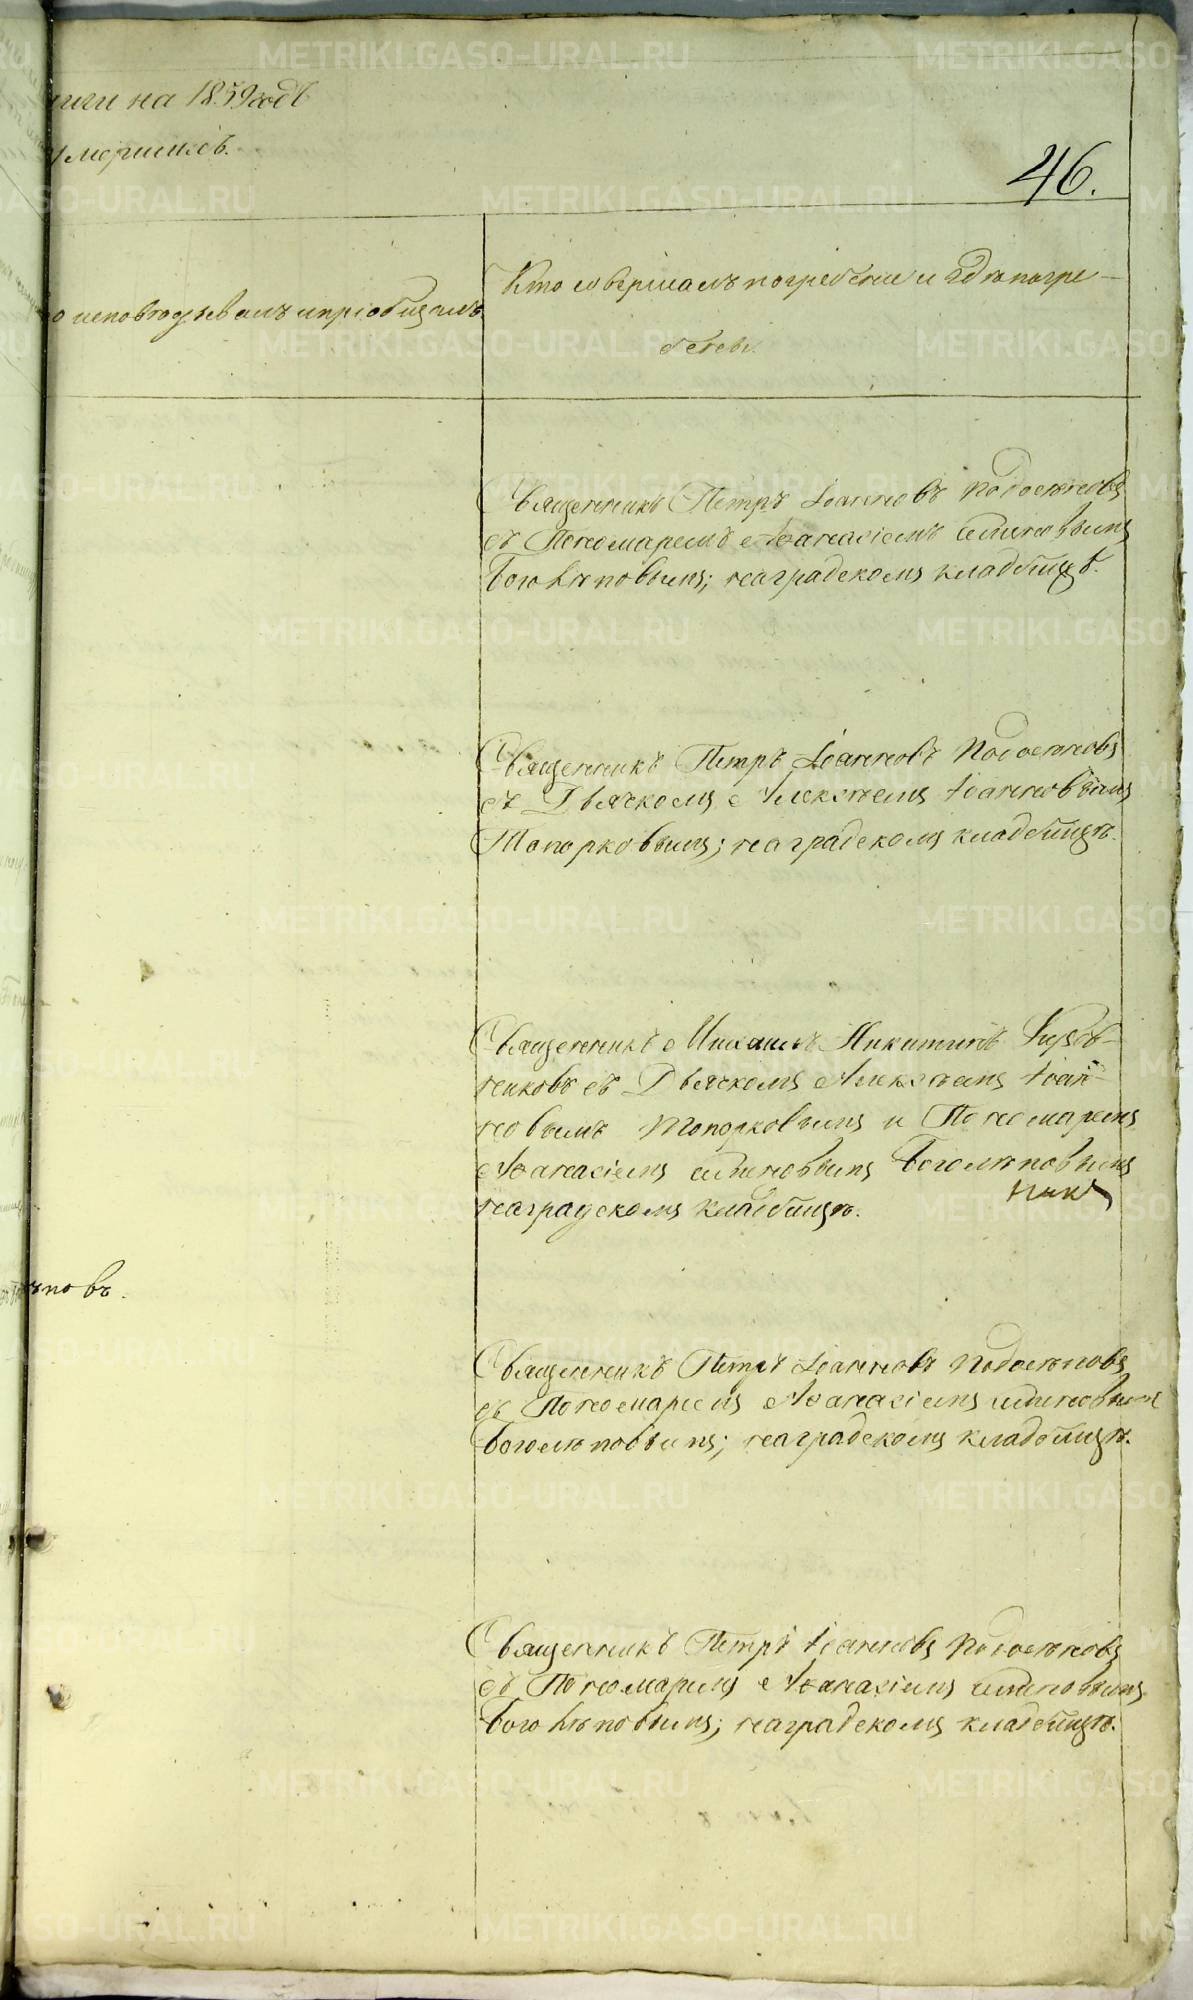 METRIKI.GASO-URAL.RU
ниги на 1859 годъ
умершихъ.
46.
о исповѣдывалъ и пріобщалъ
Кто совершалъ погребеніе и гдѣ погре-
бены.
Священникъ Петръ Іоанновъ Подосеновъ
съ Пономаремъ Аѳанасіемъ Симеоновымъ
Боголѣповымъ; на градскомъ кладбищѣ.
Священникъ Петръ Іоанновъ Подосеновъ
съ Дьячкомъ Алексѣемъ Іоанновымъ
Топорковымъ; на градскомъ кладбищѣ.
Священникъ Михаилъ Никитинъ
съ Дьячкомъ Алексѣемъ Іоан-
новымъ Топорковымъ и Пономаремъ
Аѳанасіемъ Симеоновымъ Боголѣповымъ
на градскомъ кладбищѣ.
ѣповъ.
Священникъ Петръ Іоанновъ Подосеновъ
съ Пономаремъ Аѳанасіемъ Симеоновымъ
Боголѣповымъ; на градскомъ кладбищѣ.
Священникъ Петръ Іоанновъ Подосеновъ
съ Пономаремъ Аѳанасіемъ Симеоновымъ
Боголѣповымъ; на градскомъ кладбищѣ.